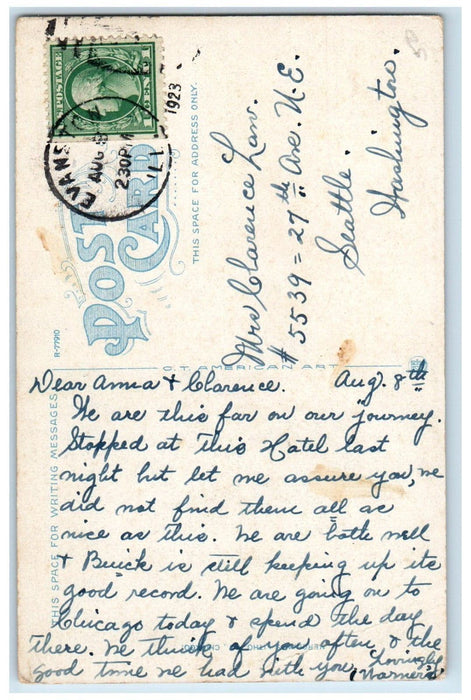 POSTAGE
1 CENT
EVANSTON
AUG 8
2 30 PM
ILL.
1923
POST CARD
THIS SPACE FOR ADDRESS ONLY.
Mrs Clarence Law.
# 5539 = 27th Ave. N.E.
Seattle.
Washington.
R-77910
C.T. AMERICAN ART
THIS SPACE FOR WRITING MESSAGES
Dear Anna & Clarence. Aug. 8th
We are this far on our journey.
Stopped at this Hotel last
night but let me assure you, we
did not find them all as
nice as this. We are both well
& Buick is still keeping up its
good record. We are going on to
Chicago today & spend the day
there. We think of you often & the
good time we had with you. Lovingly
Warners